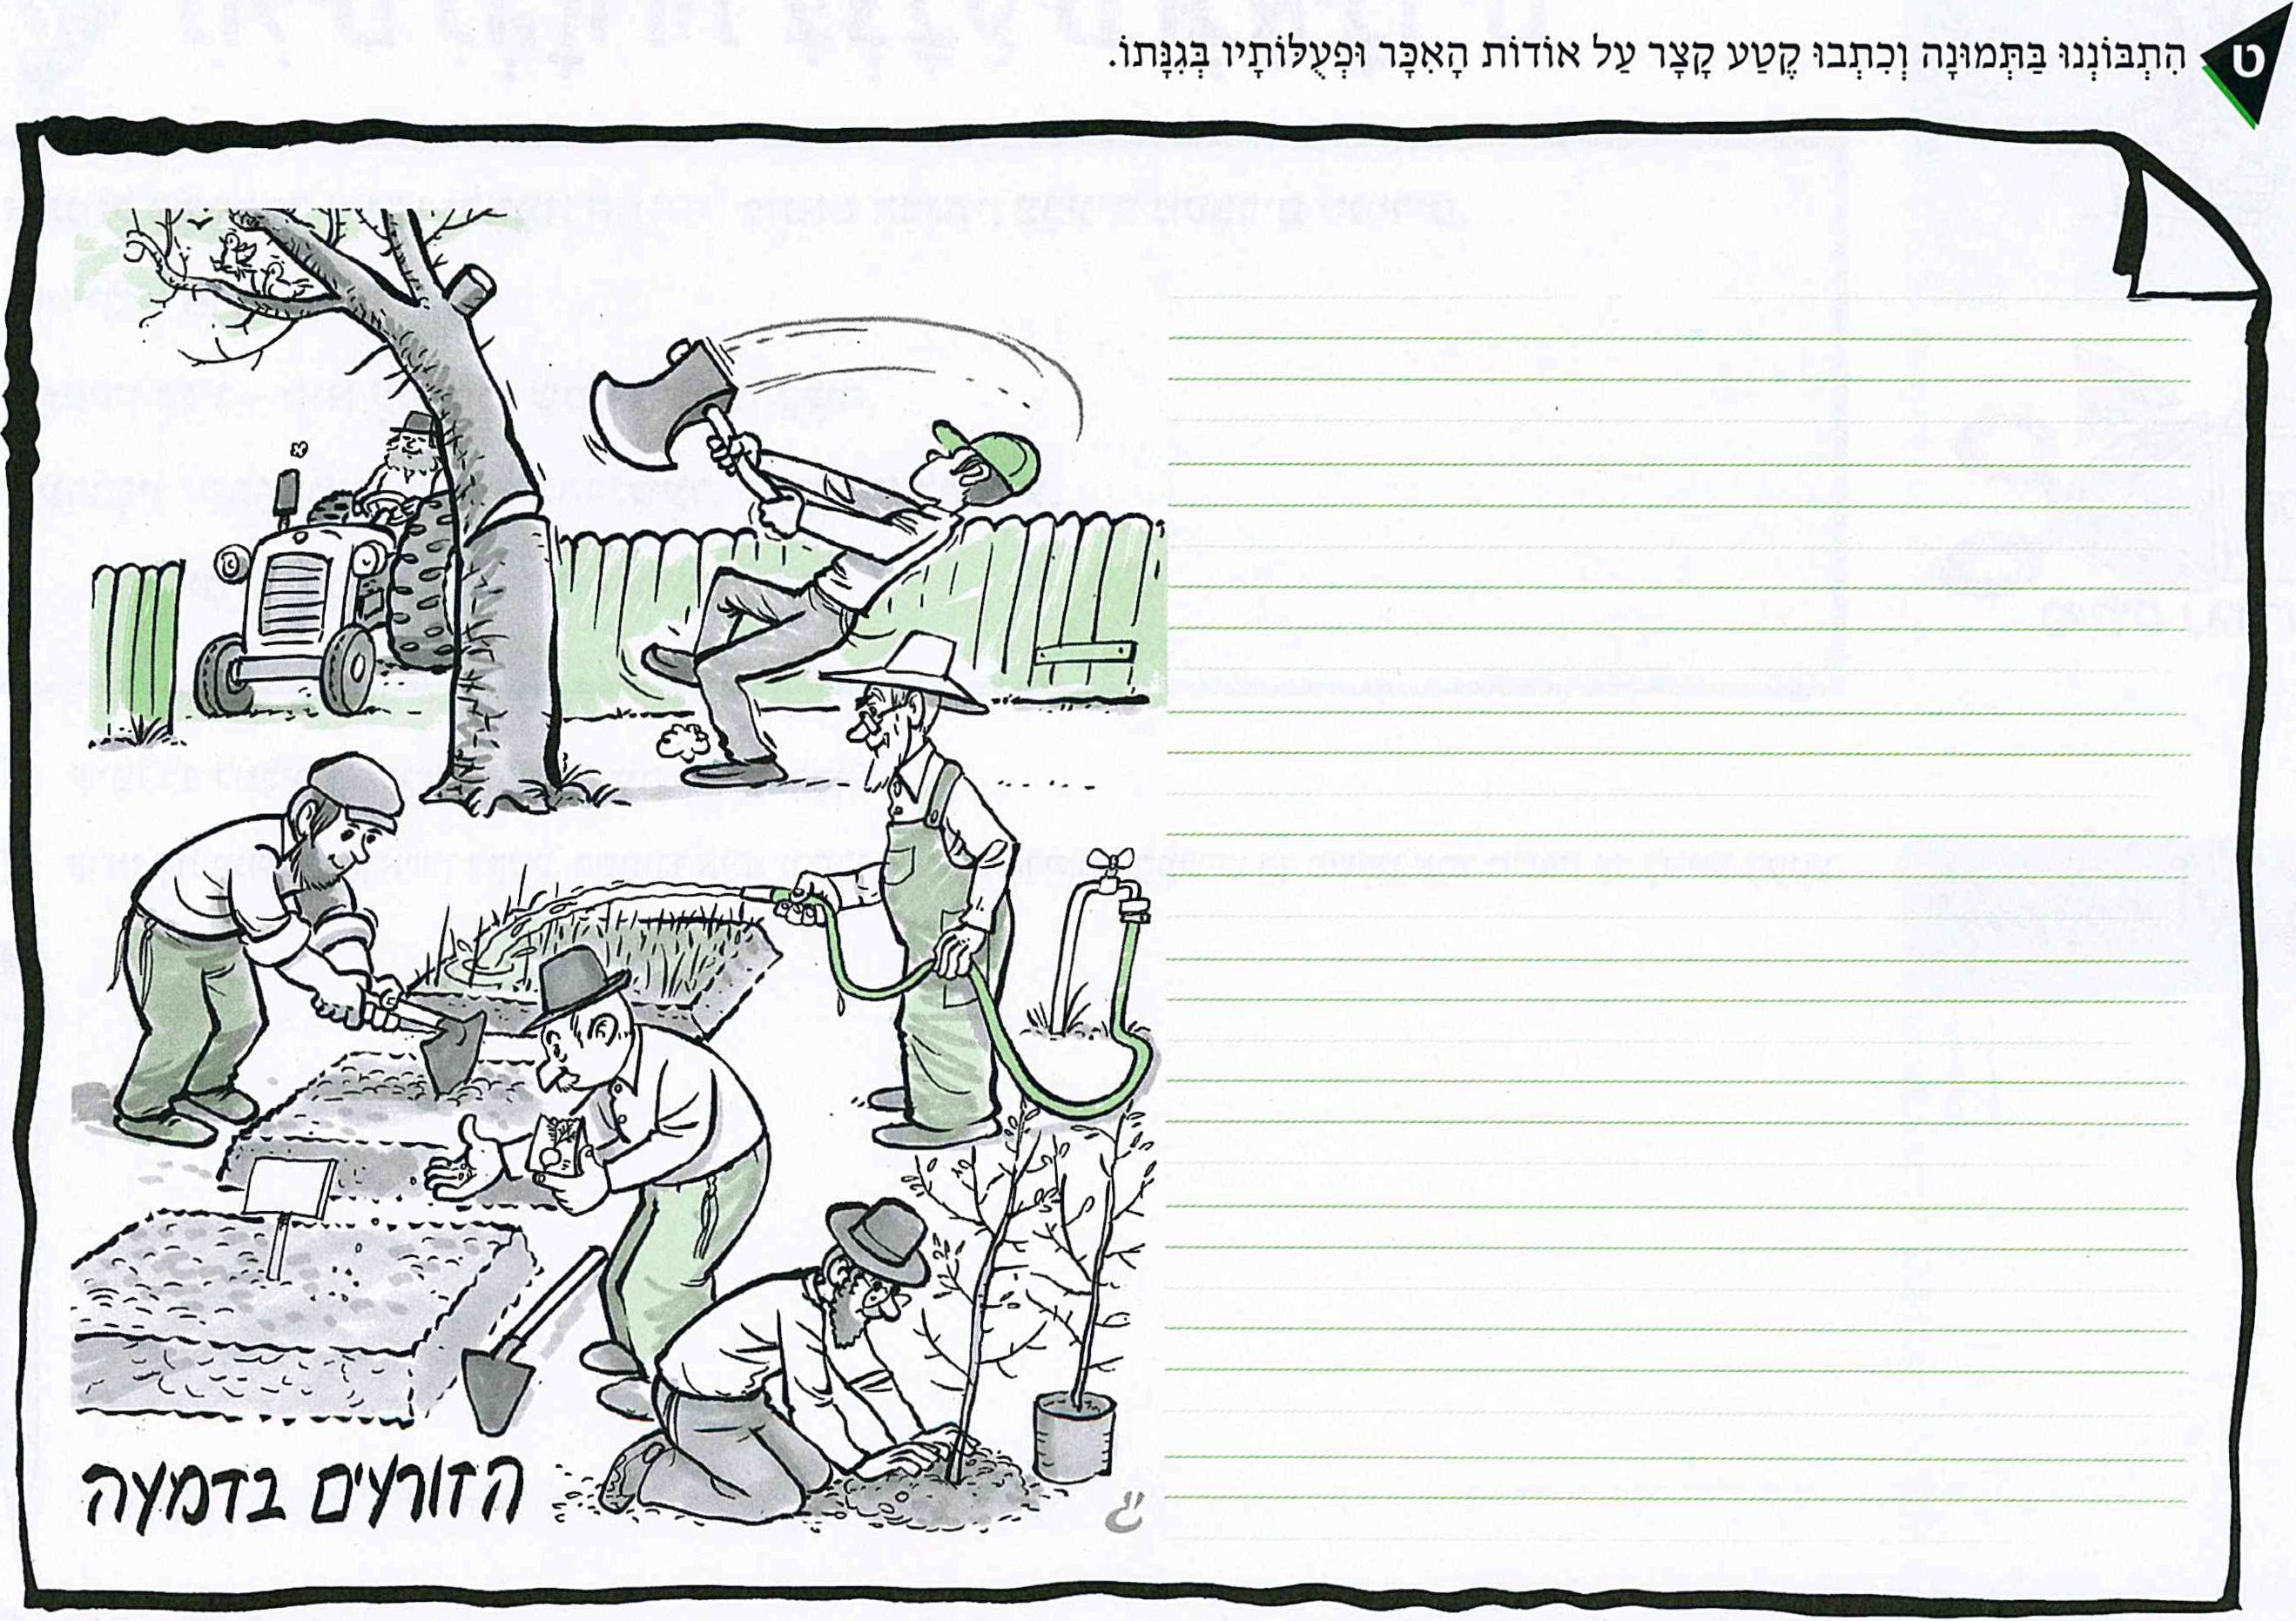 ט
הִתְבּוֹנְנוּ בַּתְּמוּנָה וְכִתְבוּ קֶטַע קָצָר עַל אוֹדוֹת הָאִכָּר וּפְעֻלּוֹתָיו בְּגִנָּתוֹ.
הזורעים בדמעה